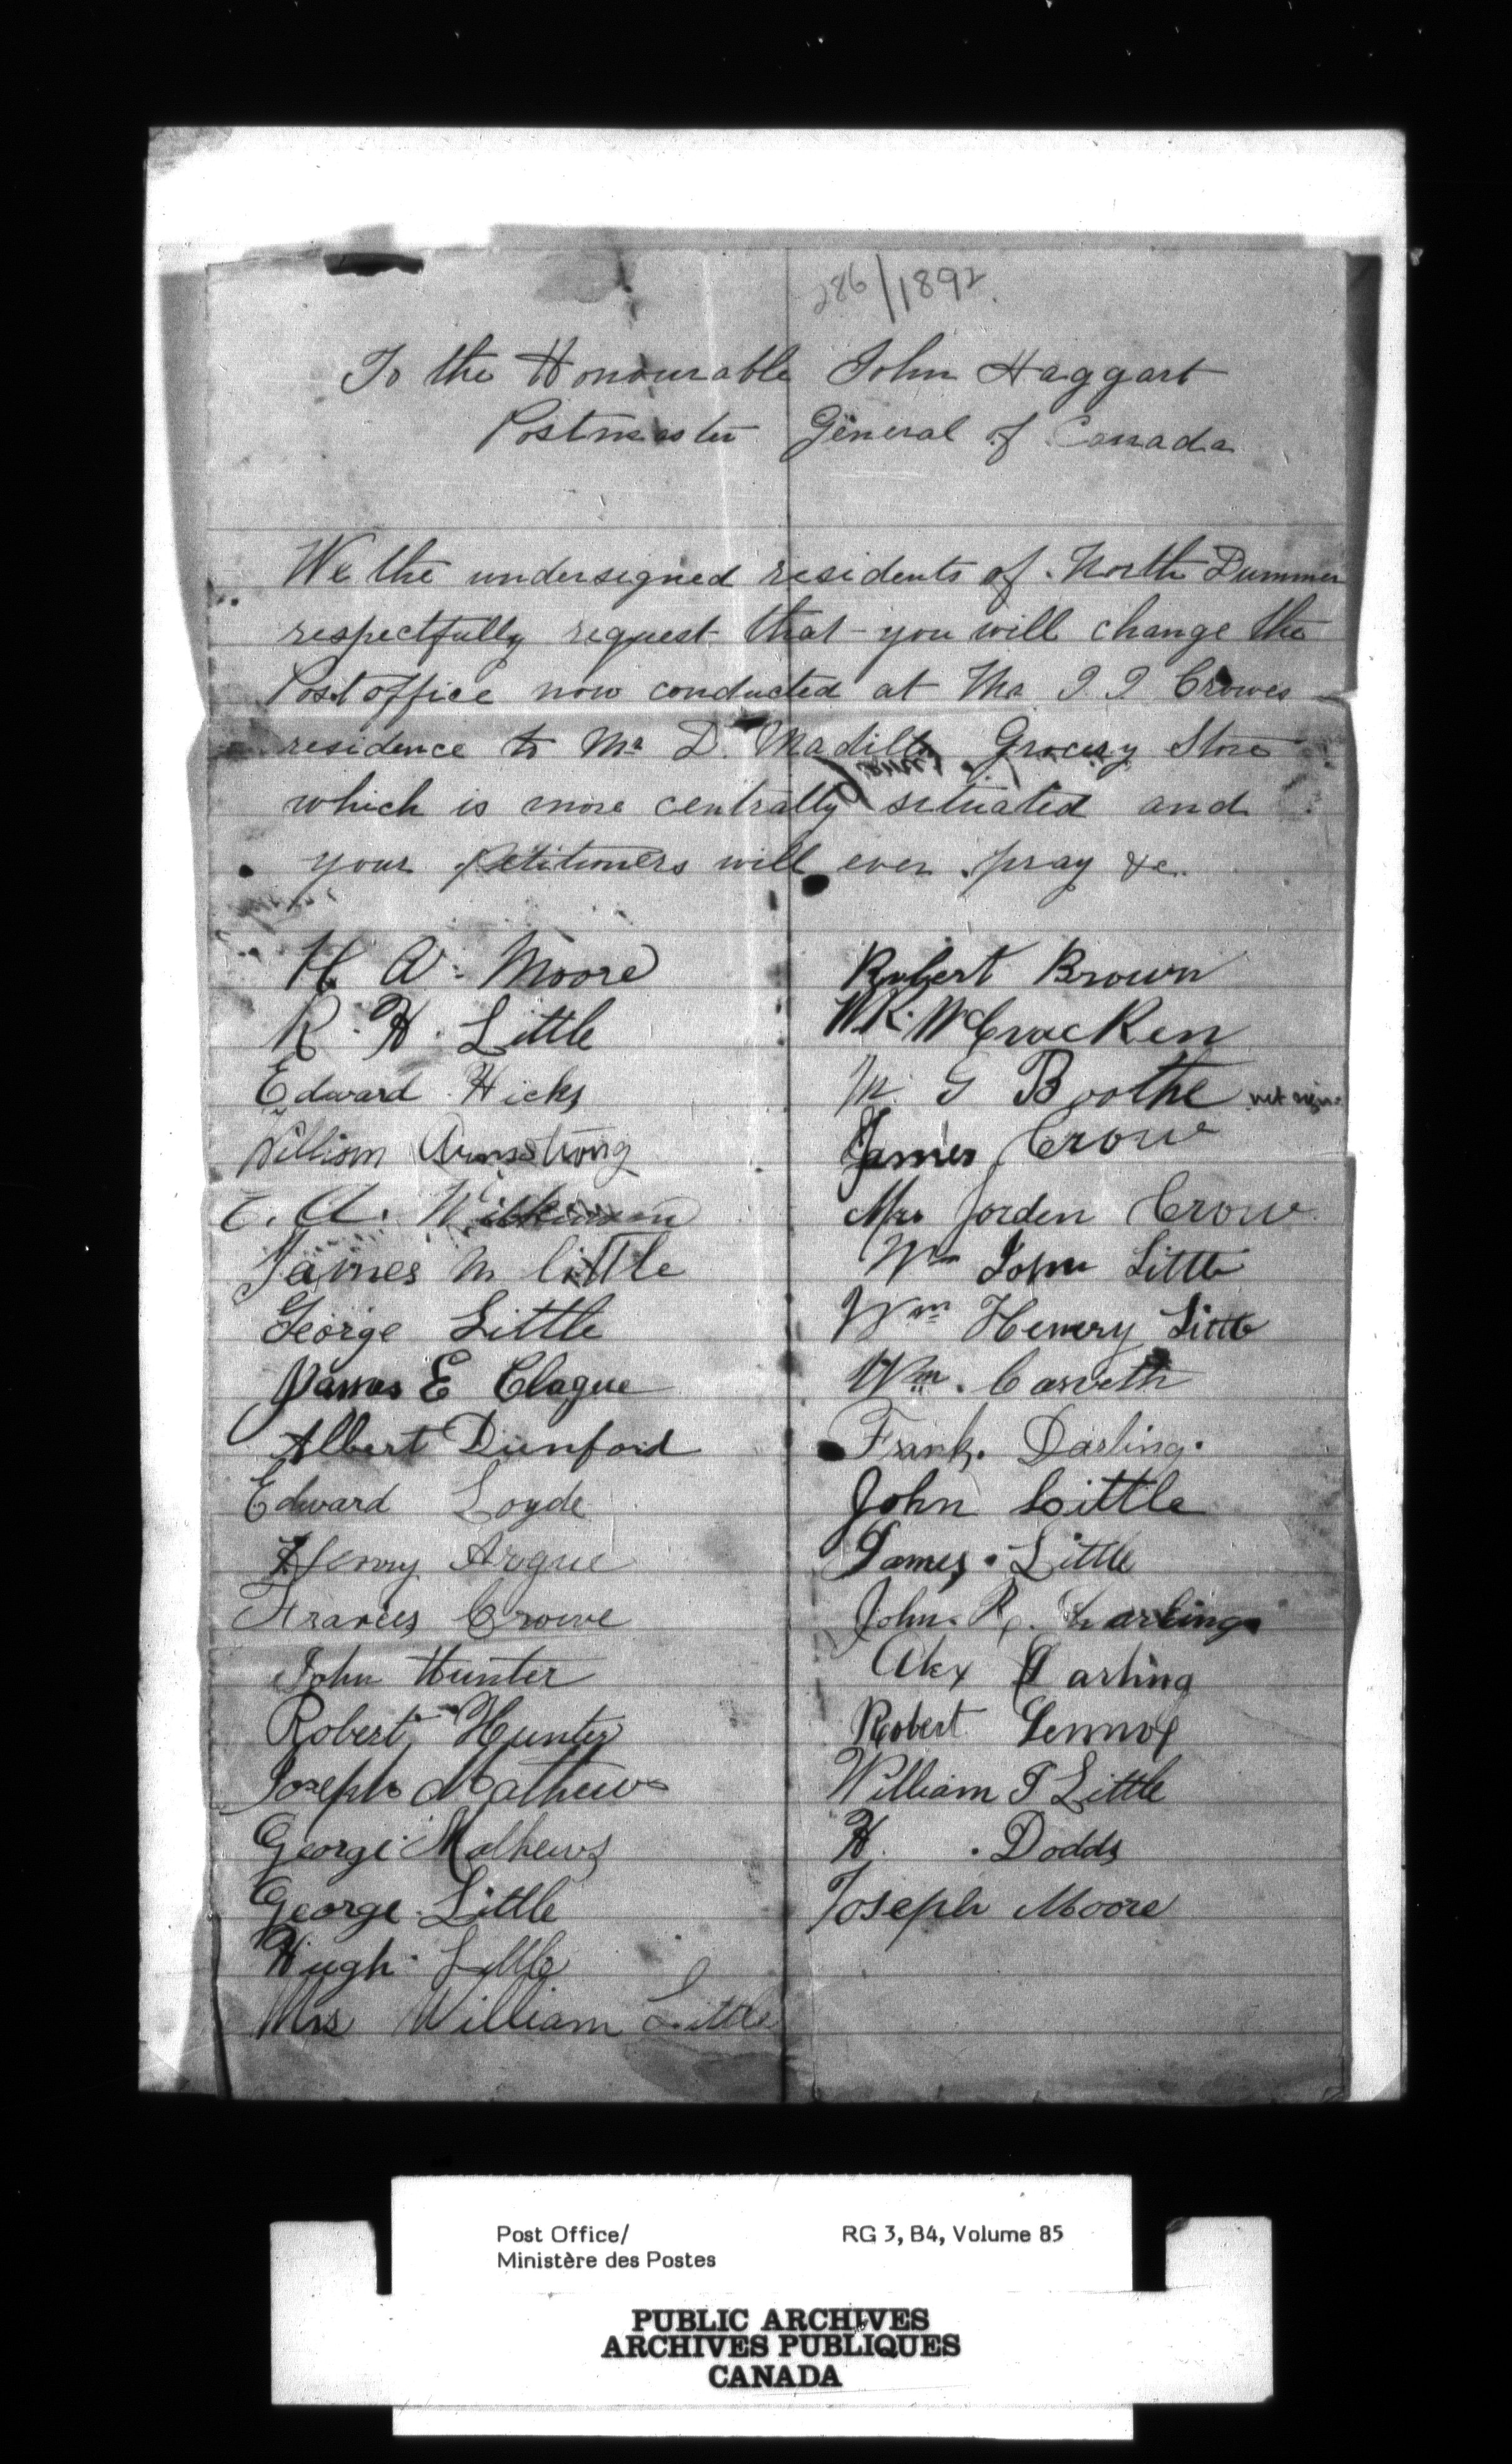 286/1892.
To the Honourable John Haggart
Postmaster General of Canada
We the undersigned residents of North Dummer
respectfully request that you will change the
Post office now conducted at Mr I I Crowes
residence to Mr D. Madills Grocery Store
which is more centrally situated and
your petitioners will ever pray &c.
H A. Moore
R. H. Little
Edward Hicks
William Armstrong
E. A. Wilkinson
James M little
George Little
James E Clague
Albert Dunford
Edward Loyde
Henry Argue
Frances Crowe
John Hunter
Robert Hunter
Joseph Mathews
George Mathews
George Little
Hugh Little
Mrs William Little
Robert Brown
W.R. McCracken
M. G Boothe
James Crow
Mrs Jorden Crow
Wm John Little
Wm Henery Little
Wm. Carveth
Frank. Darling.
John Little
James. Little
John. R. Darling
Alex Darling
Robert Lennox
William T Little
H. . Dodds
Joseph Moore
Post Office/ RG 3, B4, Volume 85
Ministère des Postes
PUBLIC ARCHIVES
ARCHIVES PUBLIQUES
CANADA